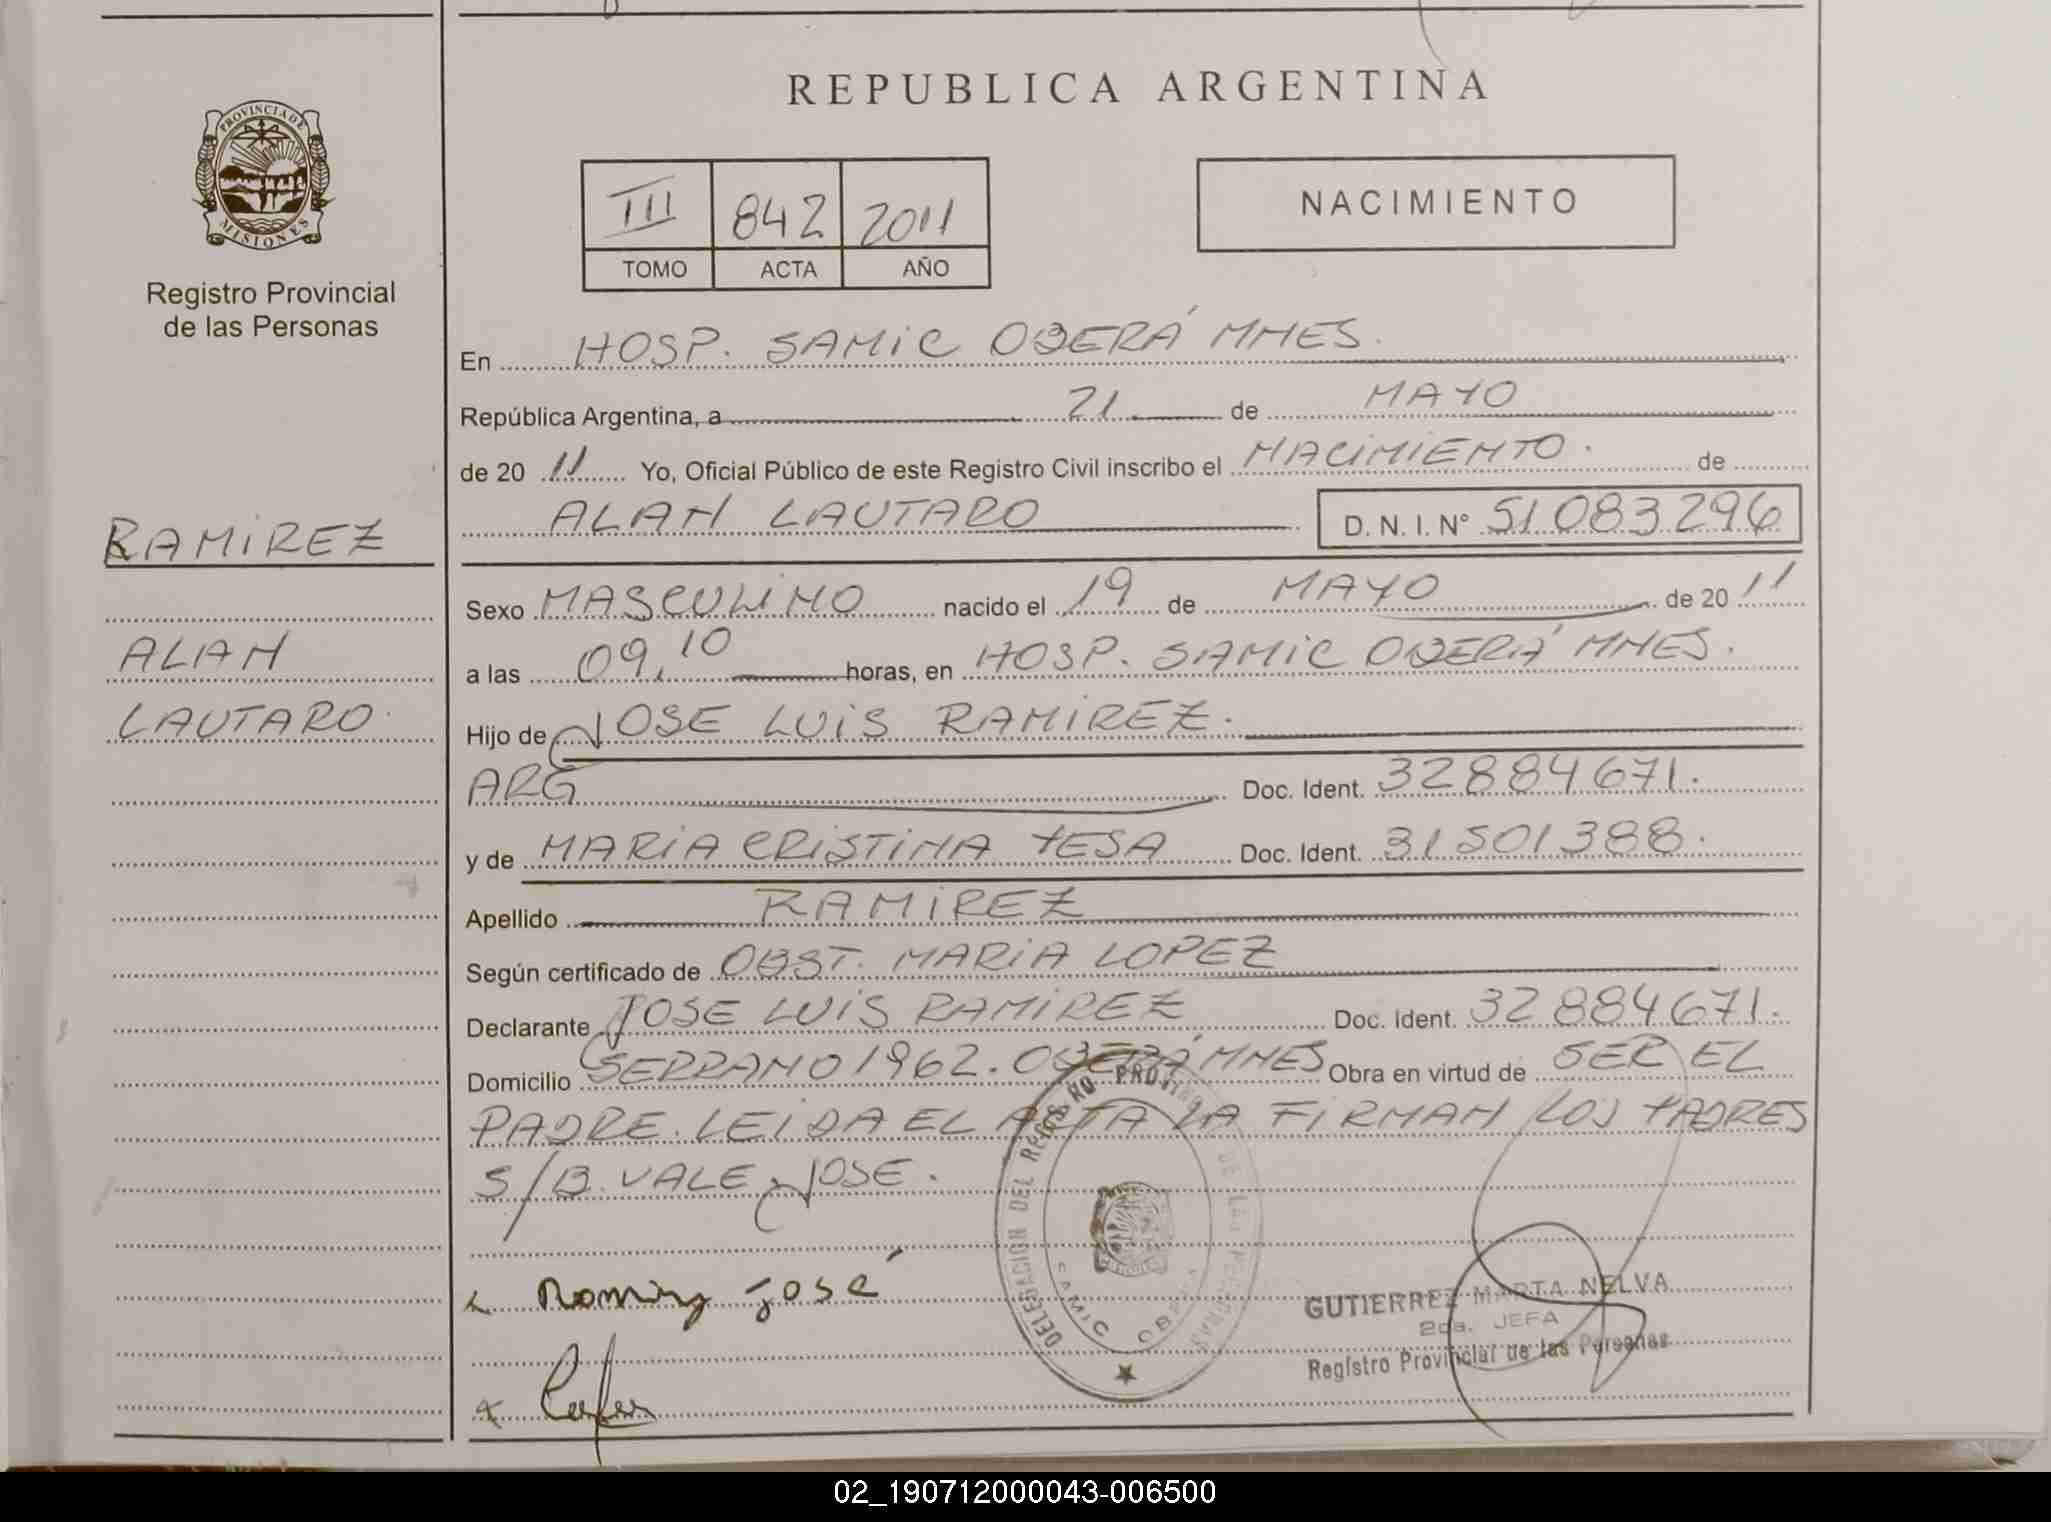 REPUBLICA ARGENTINA
PROVINCIA DE
MISIONES
Registro Provincial
de las Personas
III 842 2011
TOMO ACTA AÑO
NACIMIENTO
En HOSP. SAMIC OBERÁ MNES.
República Argentina, a 21 de MAYO
de 20 11 Yo, Oficial Público de este Registro Civil inscribo el NACIMIENTO. de
ALAN LAUTARO D. N. I. N° 51 083 296
RAMIREZ
ALAN
LAUTARO
Sexo MASCULINO nacido el 19 de MAYO de 20 11
a las 09,10 horas, en HOSP. SAMIC OBERÁ MNES.
Hijo de JOSE LUIS RAMIREZ.
ARG Doc. Ident. 32884671.
y de MARIA CRISTINA YESA Doc. Ident. 31501388.
Apellido RAMIREZ
Según certificado de OBST. MARIA LOPEZ
Declarante JOSE LUIS RAMIREZ Doc. Ident. 32884671.
Domicilio SERRANO 1962. OBERÁ MNES Obra en virtud de SER EL
PADRE. LEIDA EL ACTA LA FIRMAN LOS PADRES
S/B. VALE JOSE.
DELEGACION DEL REGISTRO PROVINCIAL DE LAS PERSONAS
SAMIC OBERA
José
GUTIERREZ MARTA NELVA
2da. JEFA
Registro Provincial de las Personas
02_190712000043-006500